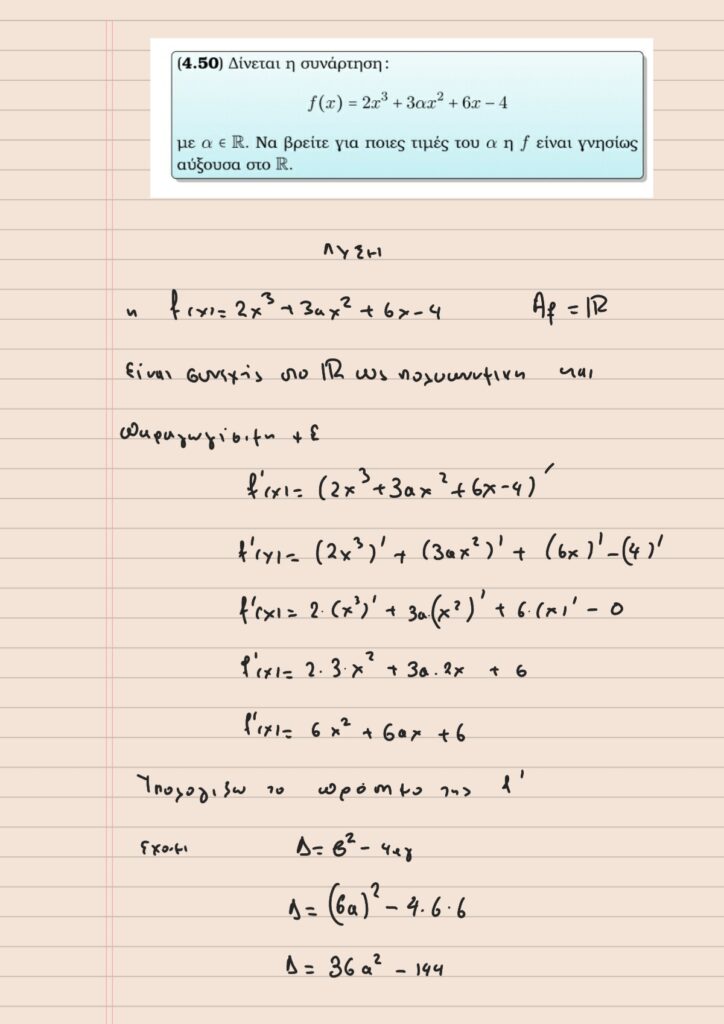 (4.50) Δίνεται η συνάρτηση:
f(x) = 2x³ + 3αx² + 6x − 4
με α ∈ ℝ. Να βρείτε για ποιες τιμές του α η f είναι γνησίως
αύξουσα στο ℝ.
ΛΥΣΗ
η f(x) = 2x³ + 3αx² + 6x - 4 Af = ℝ
είναι συνεχής στο ℝ ως πολυωνυμική και
παραγωγίσιμη με
f'(x) = (2x³ + 3αx² + 6x - 4)'
f'(x) = (2x³)' + (3αx²)' + (6x)' - (4)'
f'(x) = 2·(x³)' + 3α(x²)' + 6·(x)' - 0
f'(x) = 2·3·x² + 3α·2x + 6
f'(x) = 6x² + 6αx + 6
Υπολογίζω το πρόσημο της f'
Έχουμε Δ = β² - 4αγ
Δ = (6α)² - 4·6·6
Δ = 36α² - 144